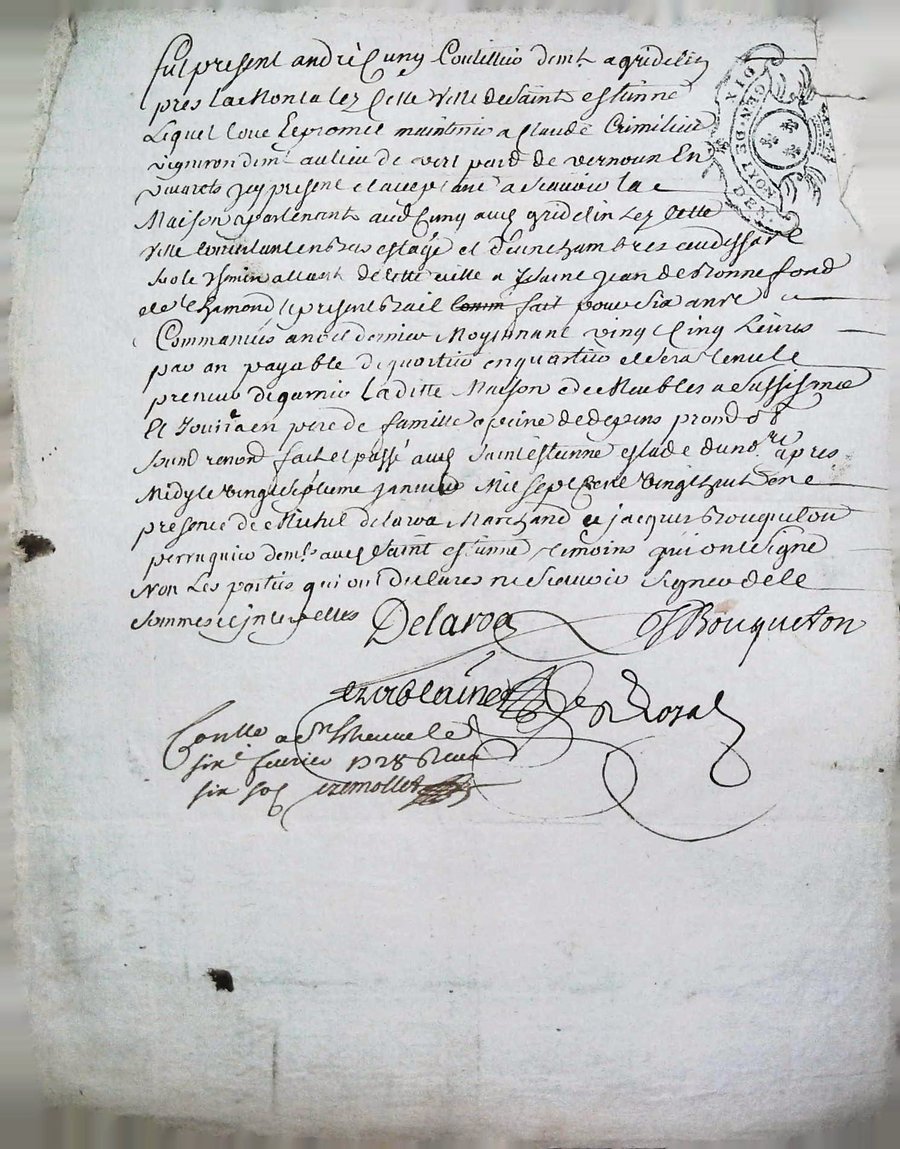 fut present andré Cuny Coutellier demt a gridelin
pres la Monta lez Cette Ville de Saint estienne
Lequel loue et promet maintenir a Claude
vigneron demt au lieu de vert pard de vernoux En
vivarets icy present et acceptant a scavoir la
Maison apartenant aud Cuny aud gridelin Lez Cette
ville Consistant en bas estage et deux chambres au dessus
sur le chemin allant de cette ville a Saint Jean de Bonnefond
et le present bail fait pour six ans
Commancés a noel dernier Moyennant vingt Cinq Livres
par an payable de quartier en quartier et sera tenu le
preneur de garnir Laditte Maison de Meubles a suffisance
Et Jouira en pere de famille a peine de
fait et passé aud Saint Estienne estude du nore apres
Midy le vingt septieme janvier Mil sept Cent vingt huit en
presence de Michel delaroa Marchand et jacques Bouqueton
perruquier demts aud Saint estienne temoins qui ont signé
Non Les parties qui ont declaré ne scavoir signer de ce
sommés et interpellés Delaroa JBouqueton
nore Royal
Conllé a St Estienne le
sixe fevrier 1728 Receu
six sols
GEN. DE LYON
DIX DEN.